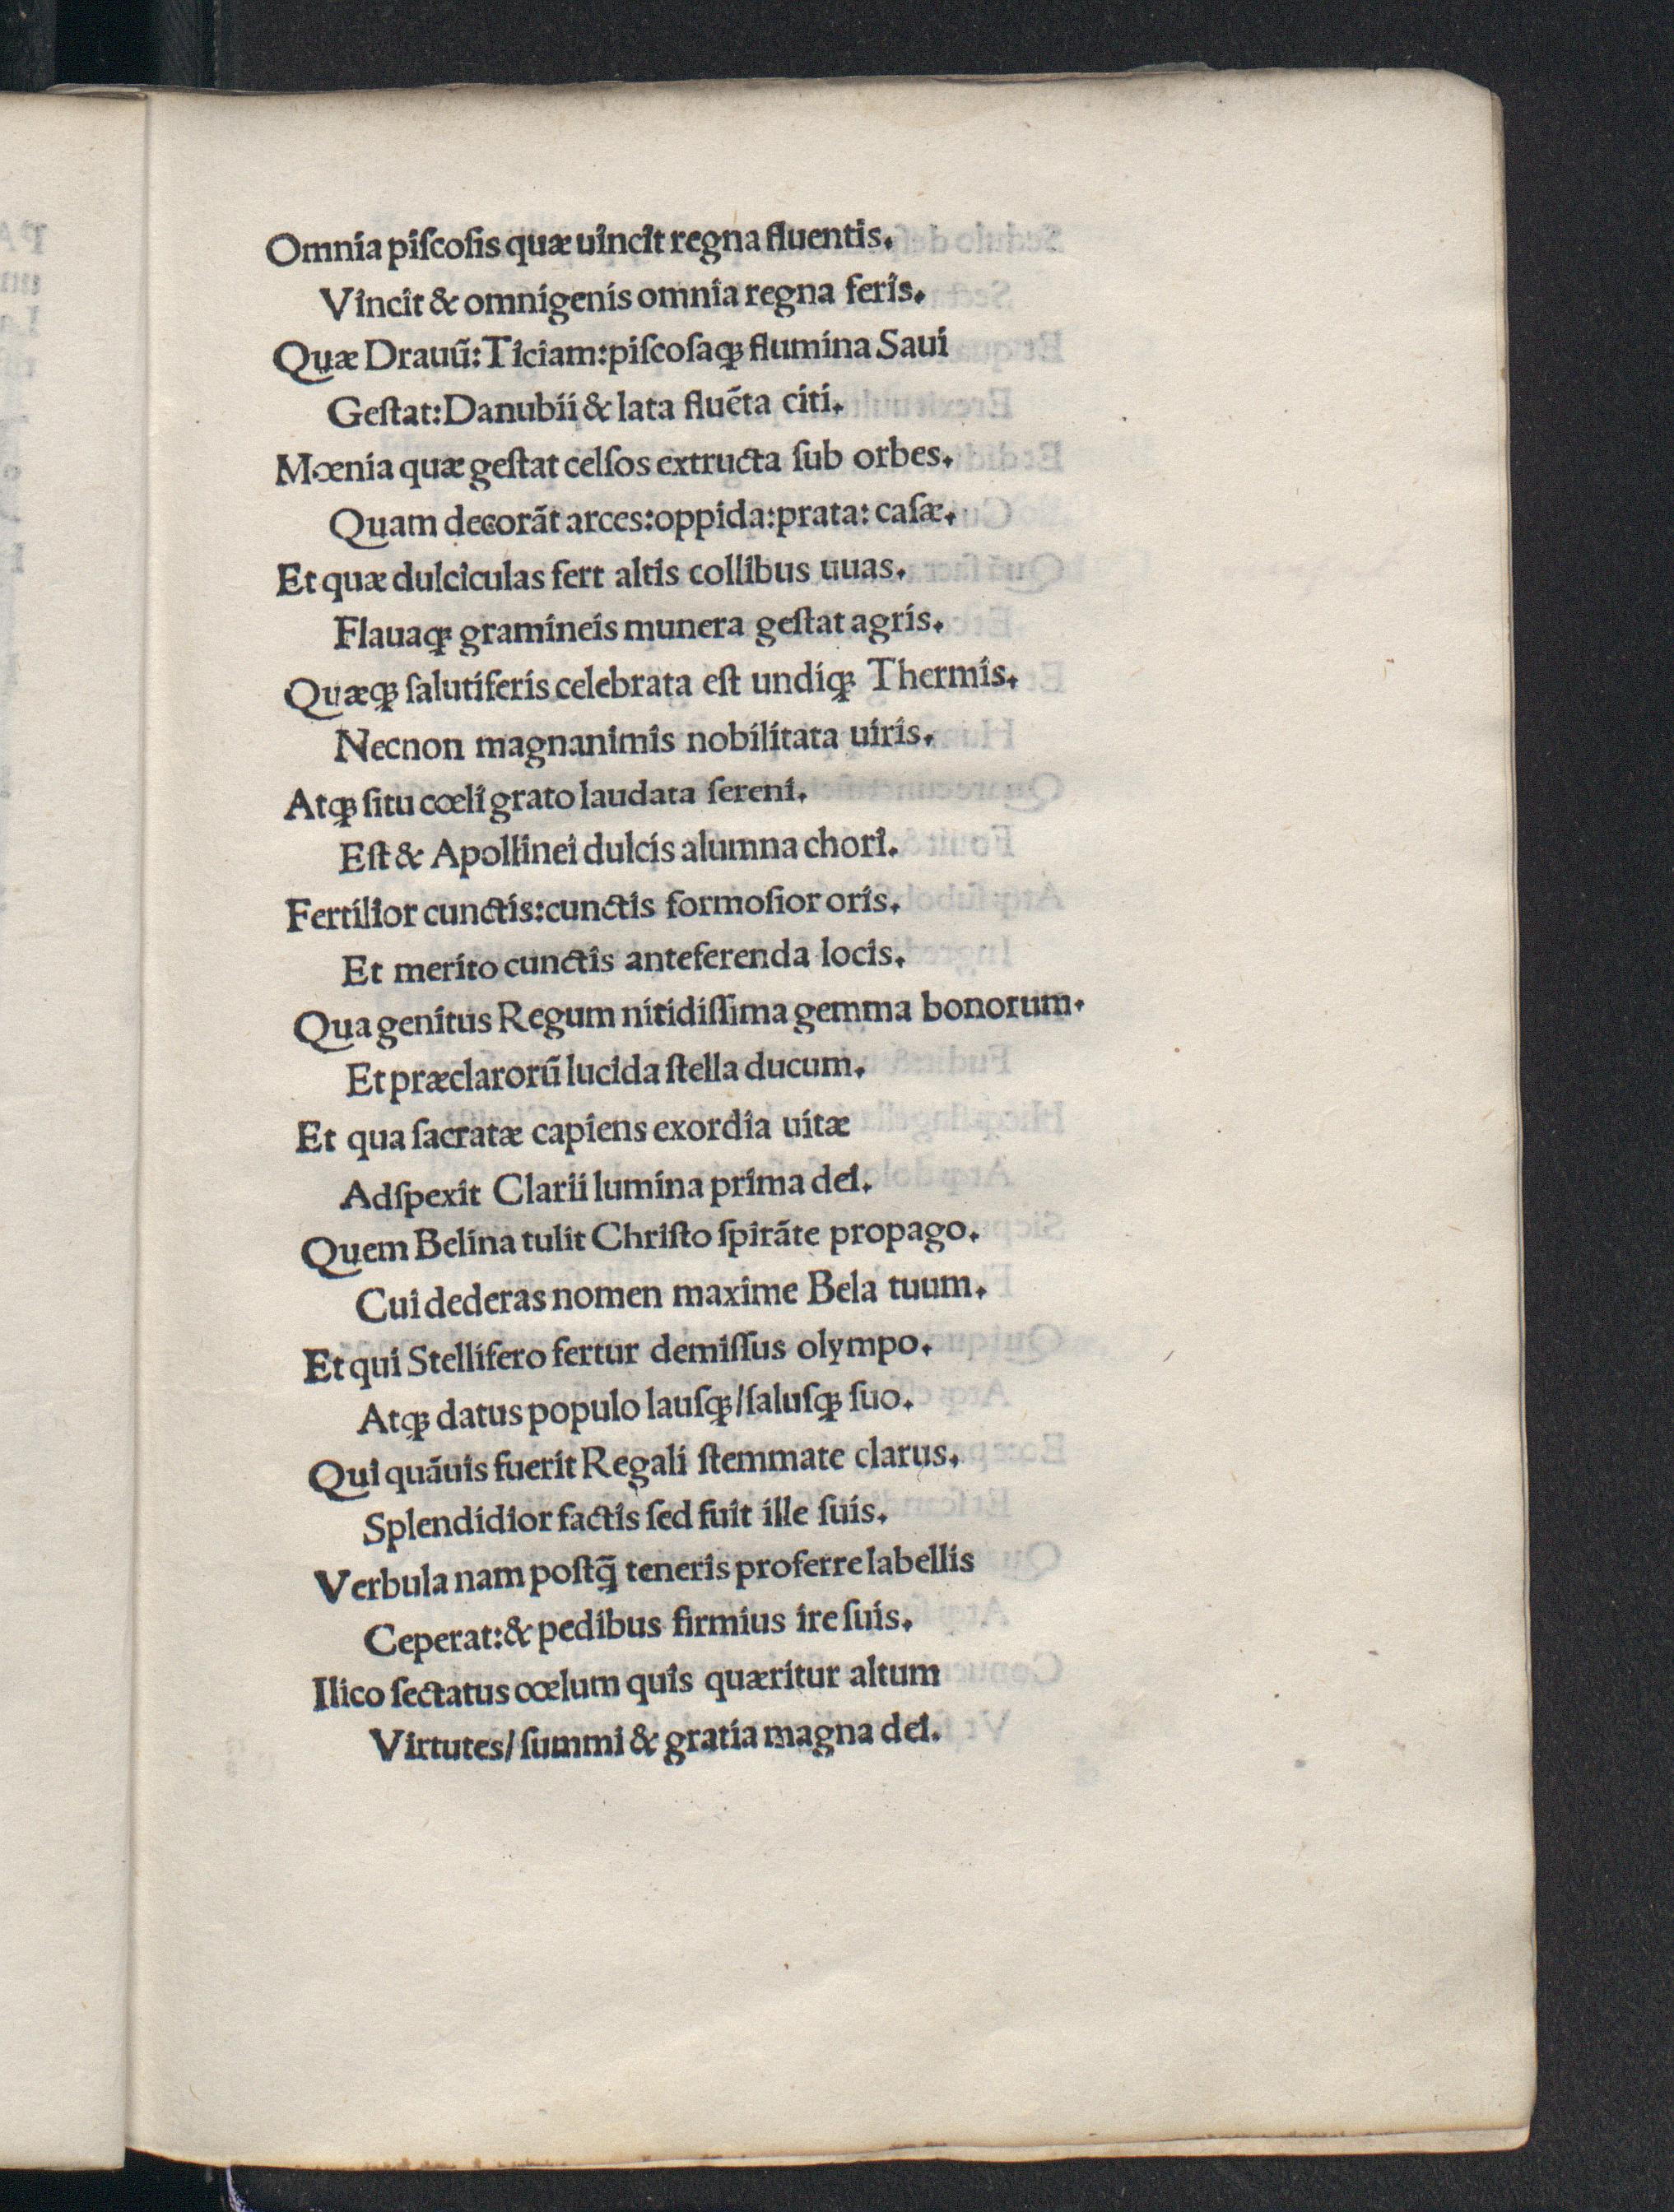 Omnia piſcoſis quæ uincit regna fluentis.
Vincit & omnigenis omnia regna feris.
Quæ Drauū: Ticiam: piſcoſaqꝫ flumina Saui
Geſtat: Danubii & lata fluẽta citi.
Mœnia quæ geſtat celſos extructa ſub orbes.
Quam decorãt arces: oppida: prata: caſæ.
Et quæ dulciculas fert altis collibus uuas.
Flauaqꝫ gramineis munera geſtat agris.
Quæqꝫ ſalutiferis celebrata eſt undiqꝫ Thermis.
Necnon magnanimis nobilitata uiris.
Atqꝫ ſitu cœli grato laudata ſereni.
Eſt & Apollinei dulcis alumna chori.
Fertilior cunctis: cunctis formoſior oris.
Et merito cunctis anteferenda locis.
Qua genitus Regum nitidiſſima gemma bonorum.
Et præclarorũ lucida ſtella ducum.
Et qua ſacratæ capiens exordia uitæ
Adſpexit Clarii lumina prima dei.
Quem Belina tulit Chriſto ſpirãte propago.
Cui dederas nomen maxime Bela tuum.
Et qui Stellifero fertur demiſſus olympo.
Atqꝫ datus populo lauſqꝫ/ſaluſqꝫ ſuo.
Qui quãuis fuerit Regali ſtemmate clarus.
Splendidior factis ſed fuit ille ſuis.
Verbula nam poſtq̃ teneris proferre labellis
Ceperat: & pedibus firmius ire ſuis.
Ilico ſectatus cœlum quis quæritur altum
Virtutes/ ſummi & gratia magna dei.